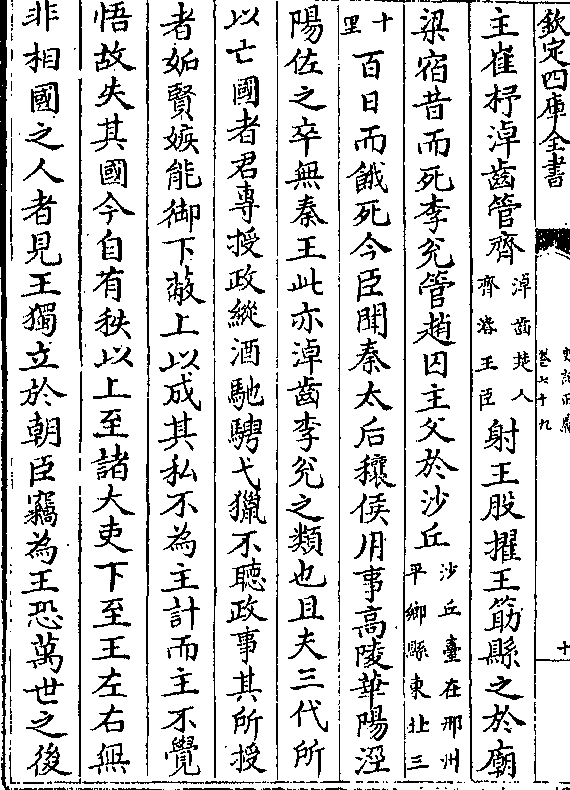 欽定四庫全書
史記正義
卷七十九
十
主崔杼淖齒管齊淖齒楚人齊湣王臣射王股擢王筋縣之於廟
梁宿昔而死李兊管趙囚主父於沙丘沙丘臺在邢州平鄉縣東北三
十里百日而餓死今臣聞秦太后穰侯用事高陵華陽涇
陽佐之卒無秦王此亦淖齒李兊之類也且夫三代所
以亡國者君專授政縱酒馳騁弋獵不聽政事其所授
者妬賢嫉能御下蔽上以成其私不為主計而主不覺
悟故失其國今自有秩以上至諸大吏下至王左右無
非相國之人者見王獨立於朝臣竊為王恐萬世之後